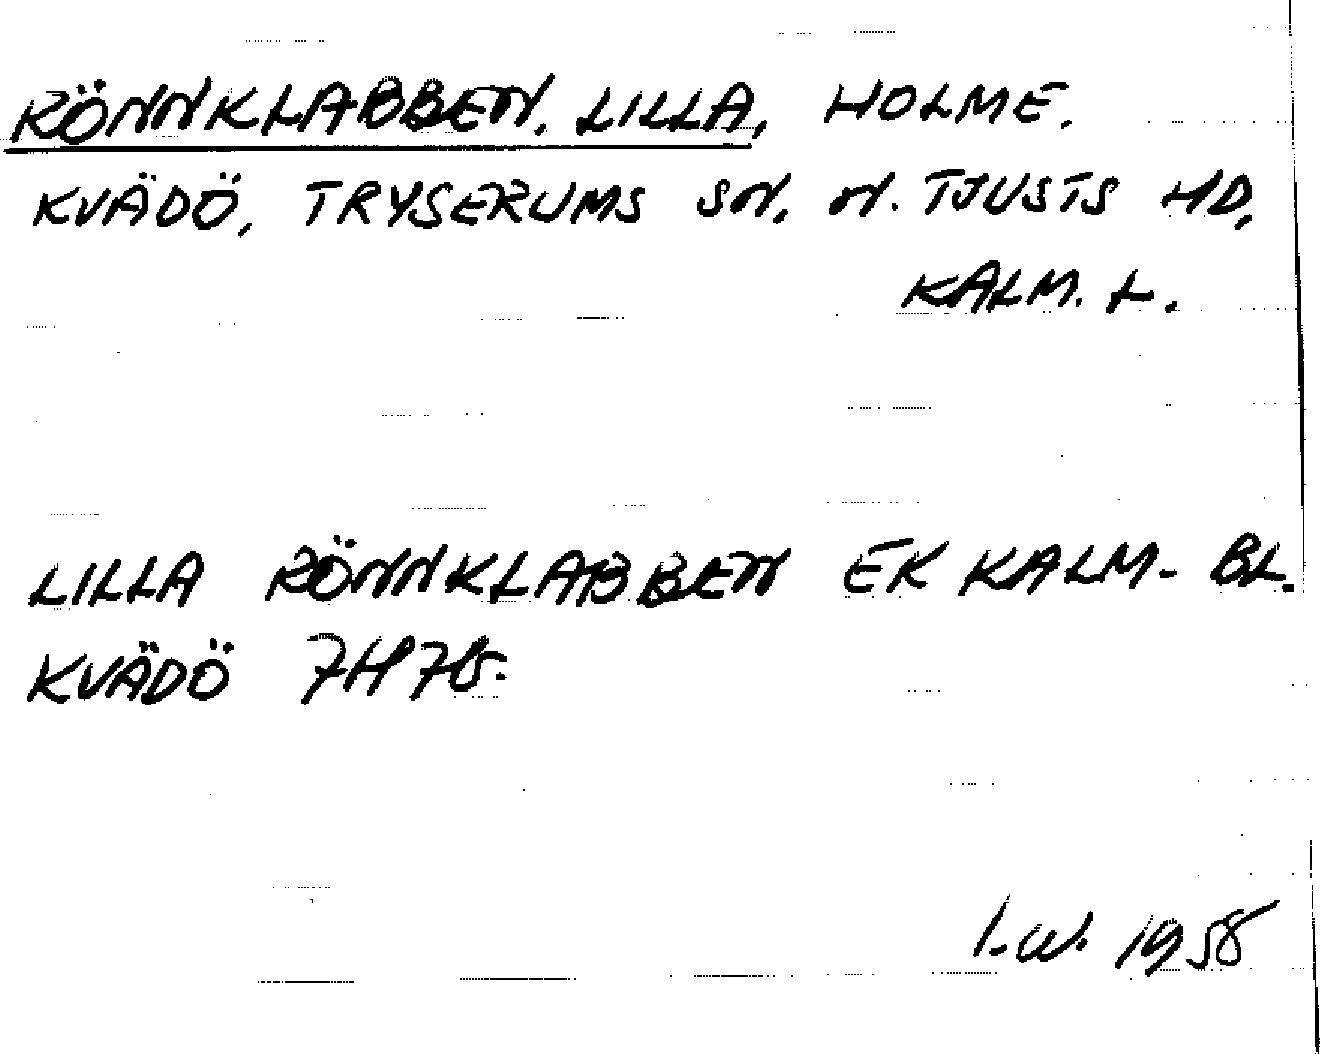 RÖNNKLABBEN, LILLA, HOLME.
KVÄDÖ, TRYSERUMS SN, N. TJUSTS HD,
KALM. L.
LILLA RÖNNKLABBEN EK KALM- BL.
KVÄDÖ 7H7b.
I.W. 1958